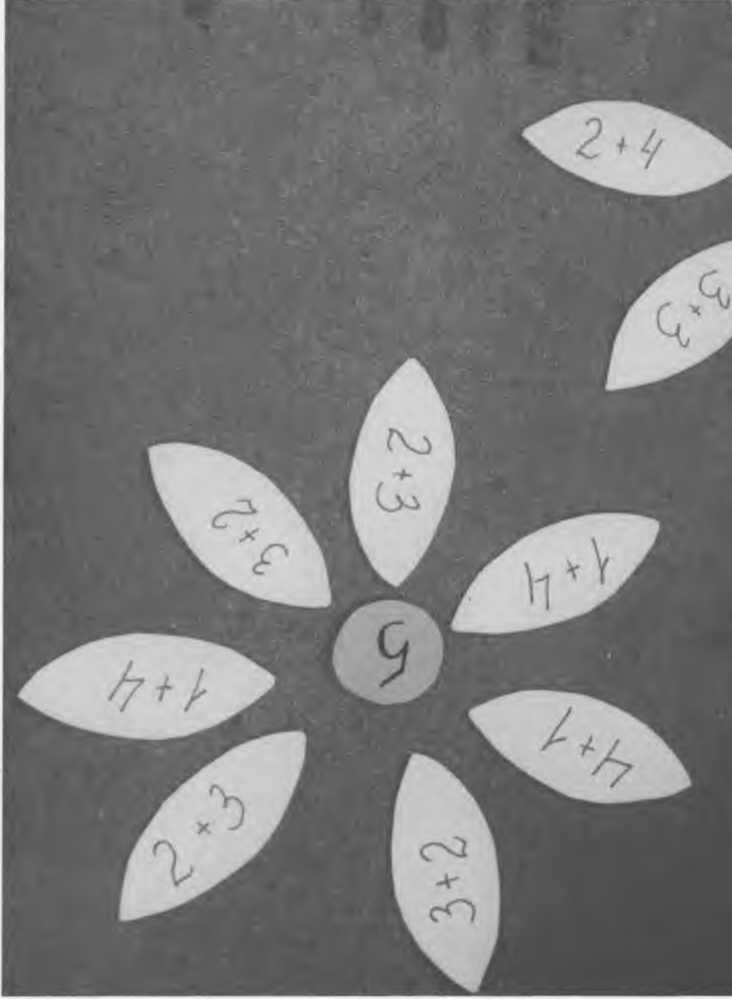 2+4
3+3
2+3
3+2
1+4
5
1+4
4+1
2+3
3+2